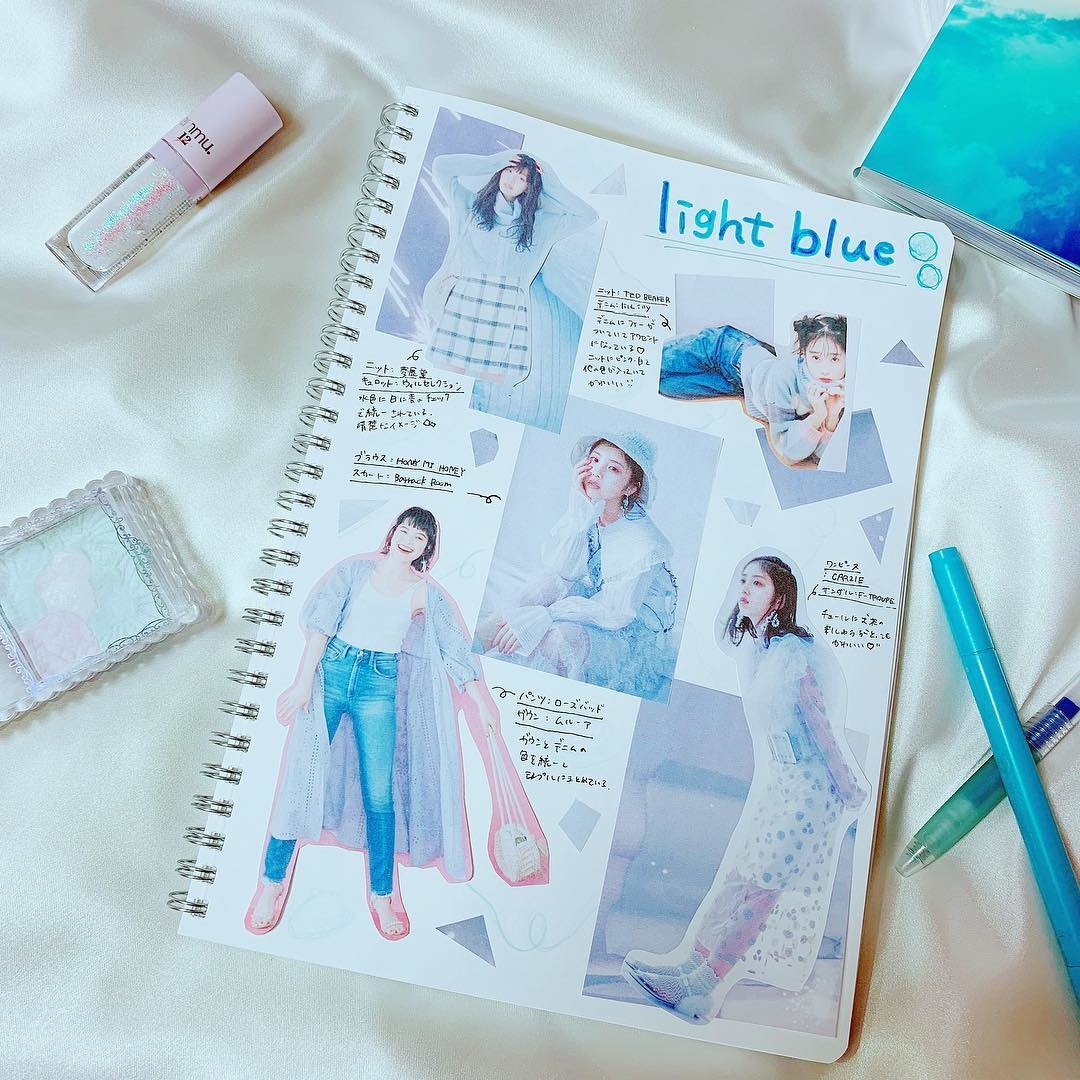 nmu.
12
light blue
ニット: TED BEAKER
デニム:
デニムに
ついていてアクセント
になっている♡
ニットにピンク・白と
他の色が入っていて
かわいい
ニット:
キュロット:ウィルセレクション
水色に白に青のチェック
で統一されている。
清楚なイメージ
ブラウス: HONEY MI HONEY
スカート: Barrack Room
ワンピース
: CARZIE
サンダル:F-TROUPE
チュールに
かわいい♡
パンツ:ローズバッド
ガウン: ムルーア
ガウンとデニムの
色を統一し
シンプルにまとめている。